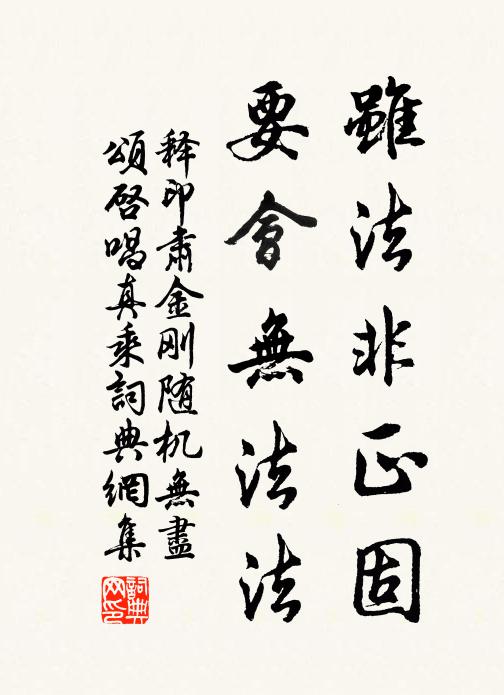 雖法非正固
要會無法法
释印肃金刚随机無盡
頌啓唱真乘詞典網集
詞典
网印